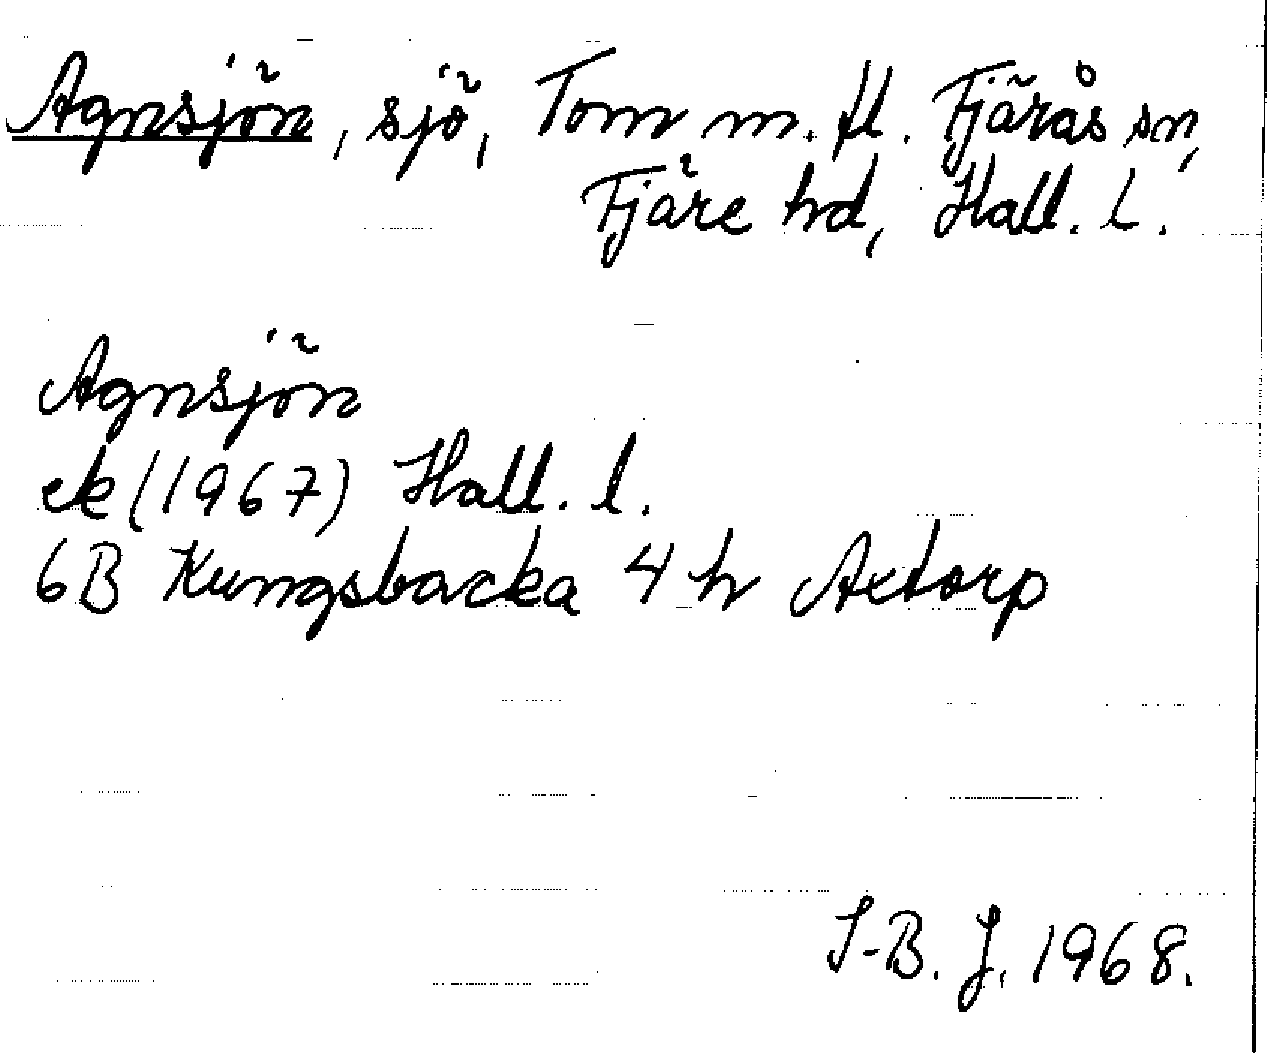 Agnsjön, sjö, Tom m. fl. Fjärås sn,
Fjäre hd, Hall. l.
Agnsjön
ek (1967) Hall. l.
6B Kungsbacka 4 h Axtorp
I-B. J. 1968.